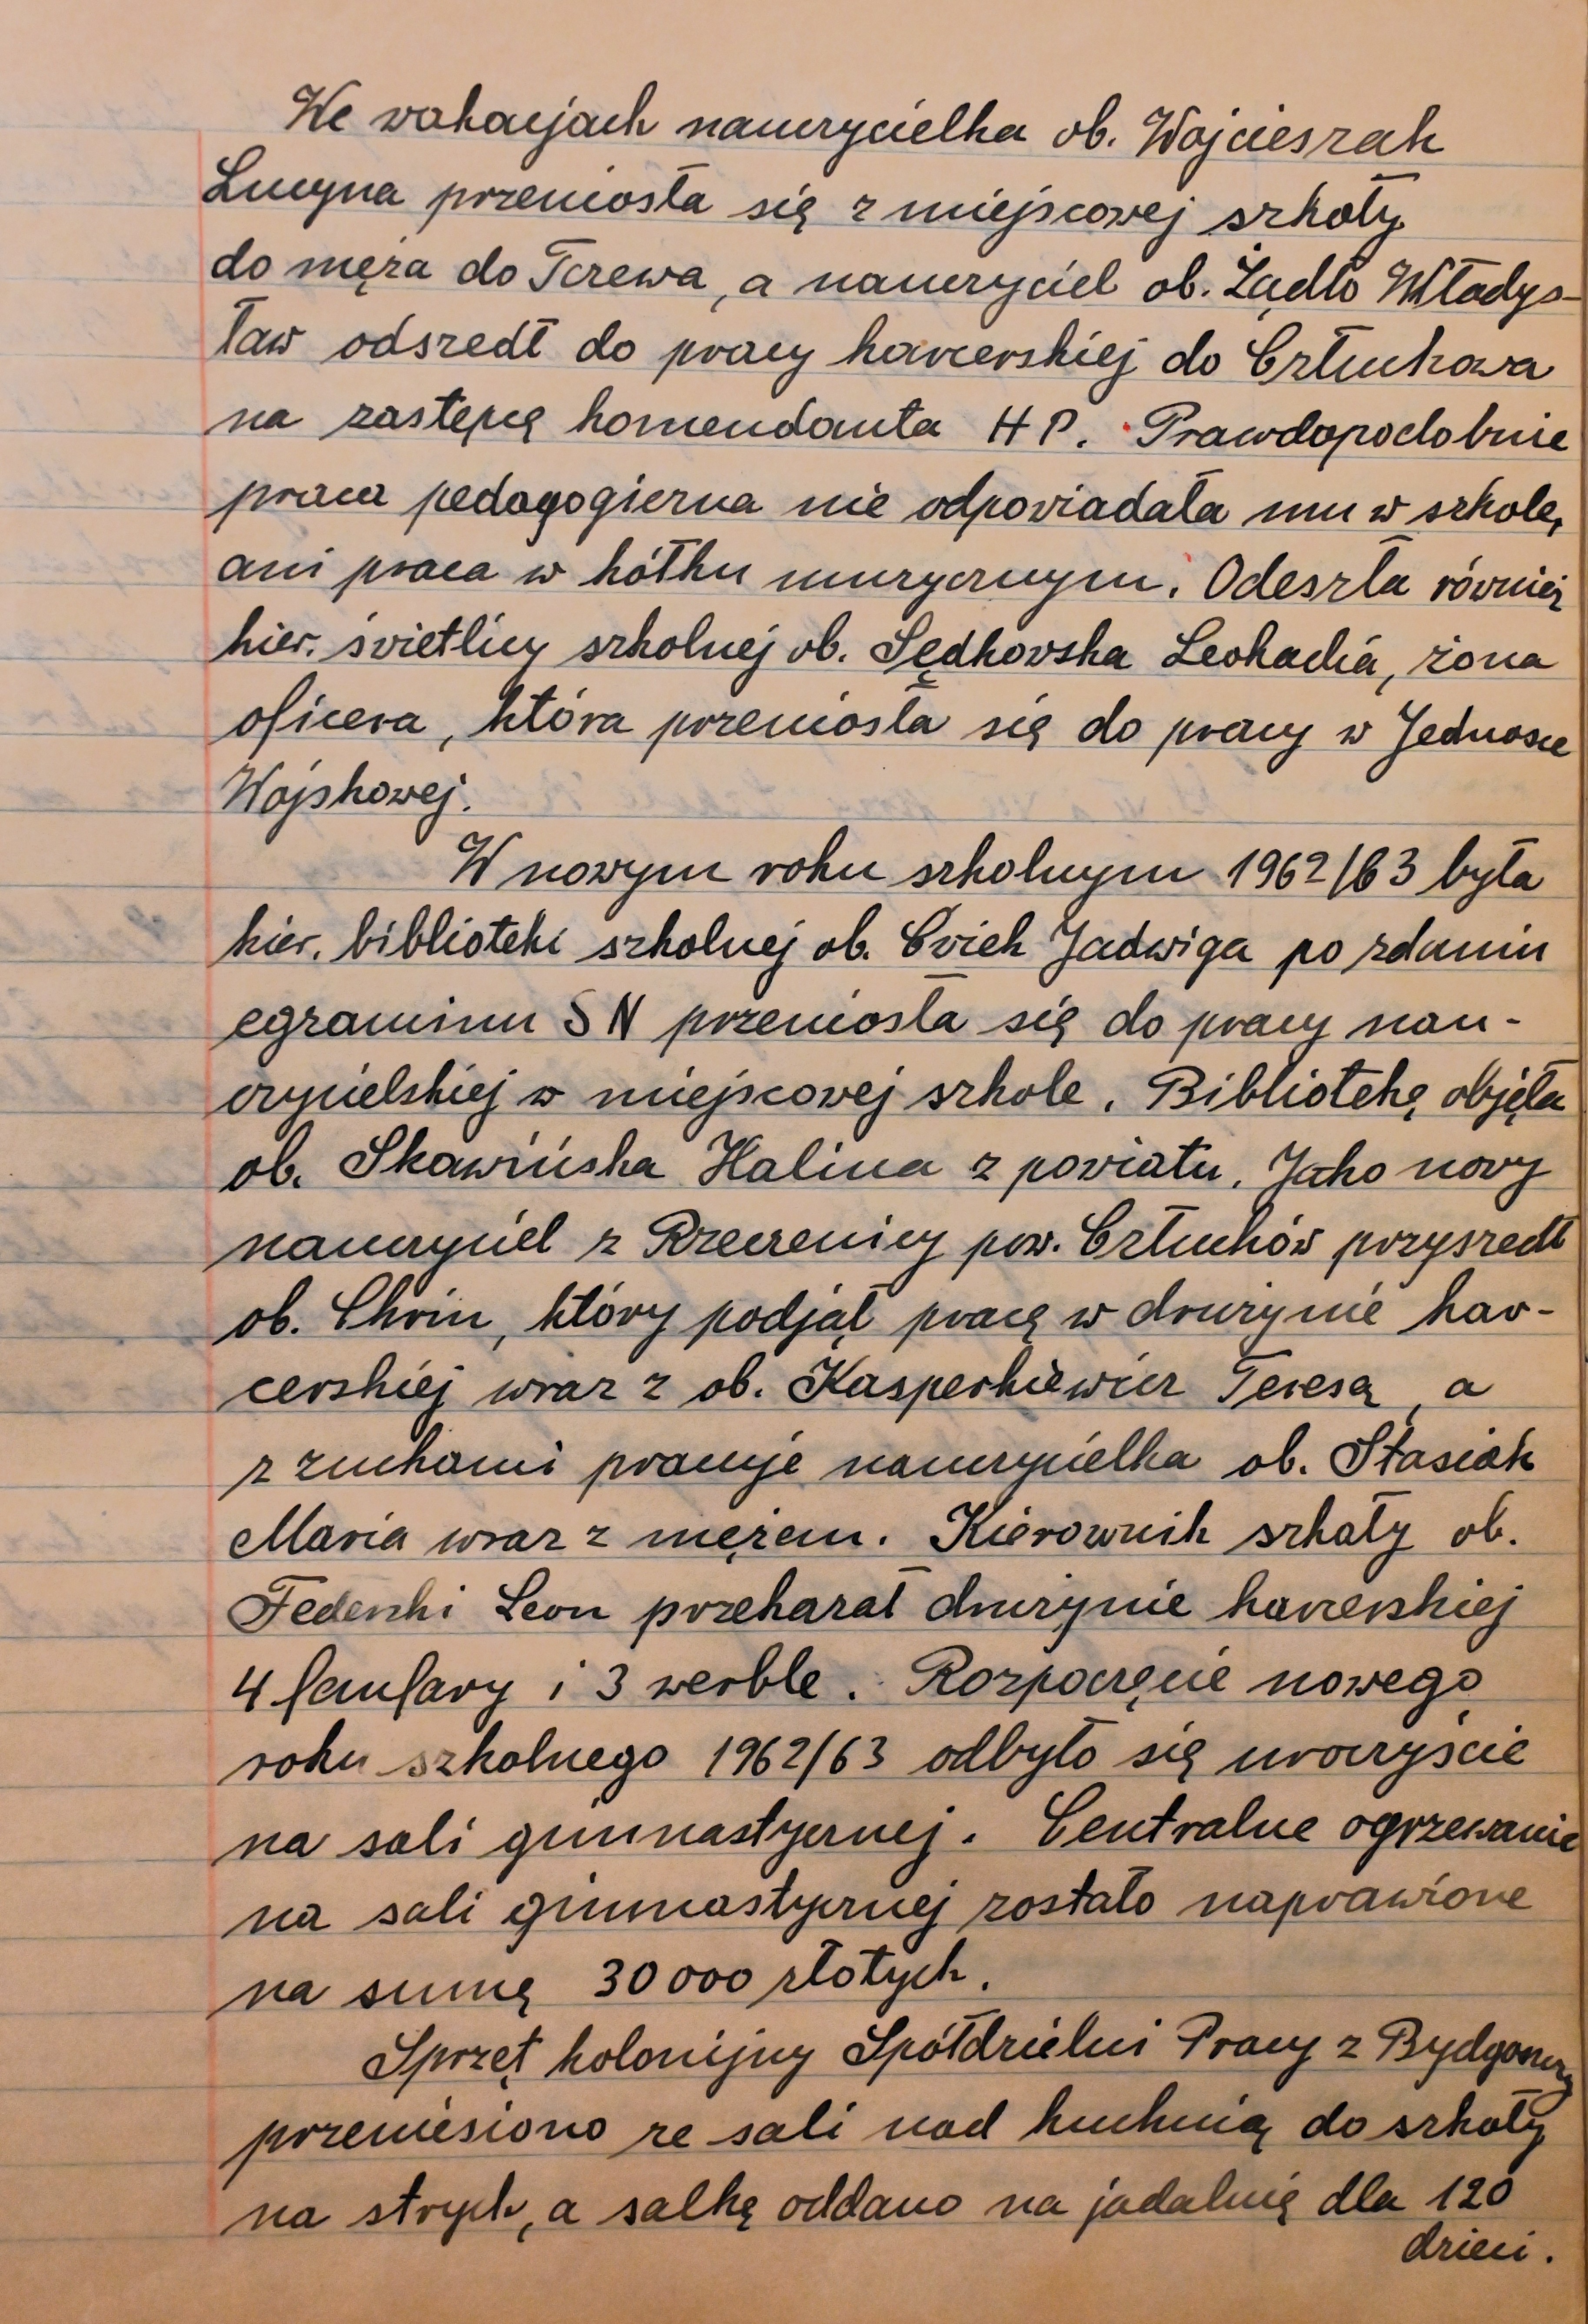 We wakacjach nauczycielka ob. Wojcieszak
Lucyna przeniosła się z miejscowej szkoły
do męża do Tczewa, a nauczyciel ob. Żądło Władys-
ław odszedł do pracy harcerskiej do Człuchowa
na zastępcę komendanta HP. Prawdopodobnie
praca pedagogiczna nie odpowiadała mu w szkole,
ani praca w kółku muzycznym. Odeszła również
kier. świetlicy szkolnej ob. Sędkowska Leokadia, żona
oficera, która przeniosła się do pracy w Jednosce
Wojskowej.
W nowym roku szkolnym 1962/63 była
kier. biblioteki szkolnej ob. Ćwiek Jadwiga po zdaniu
egzaminu SN przeniosła się do pracy nau-
czycielskiej w miejscowej szkole. Bibliotekę objęła
ob. Skawińska Halina z powiatu. Jako nowy
nauczyciel z Rzeczenicy pow. Człuchów przyszedł
ob. Chrin, który podjął pracę w drużynie har-
cerskiej wraz z ob. Kasperkiewicz Teresą, a
z zuchami pracuje nauczycielka ob. Stasiak
Maria wraz z mężem. Kierownik szkoły ob.
Leon przekazał drużynie harcerskiej
4 fanfary i 3 werble. Rozpoczęcie nowego
roku szkolnego 1962/63 odbyło się uroczyście
na sali gimnastycznej. Centralne ogrzewanie
na sali gimnastycznej zostało naprawione
na sumę 30 000 złotych.
Sprzęt kolonijny Spółdzielni Pracy z Bydgoszczy
przeniesiono ze sali nad kuchnią do szkoły
na strych, a salkę oddano na jadalnię dla 120
dzieci.